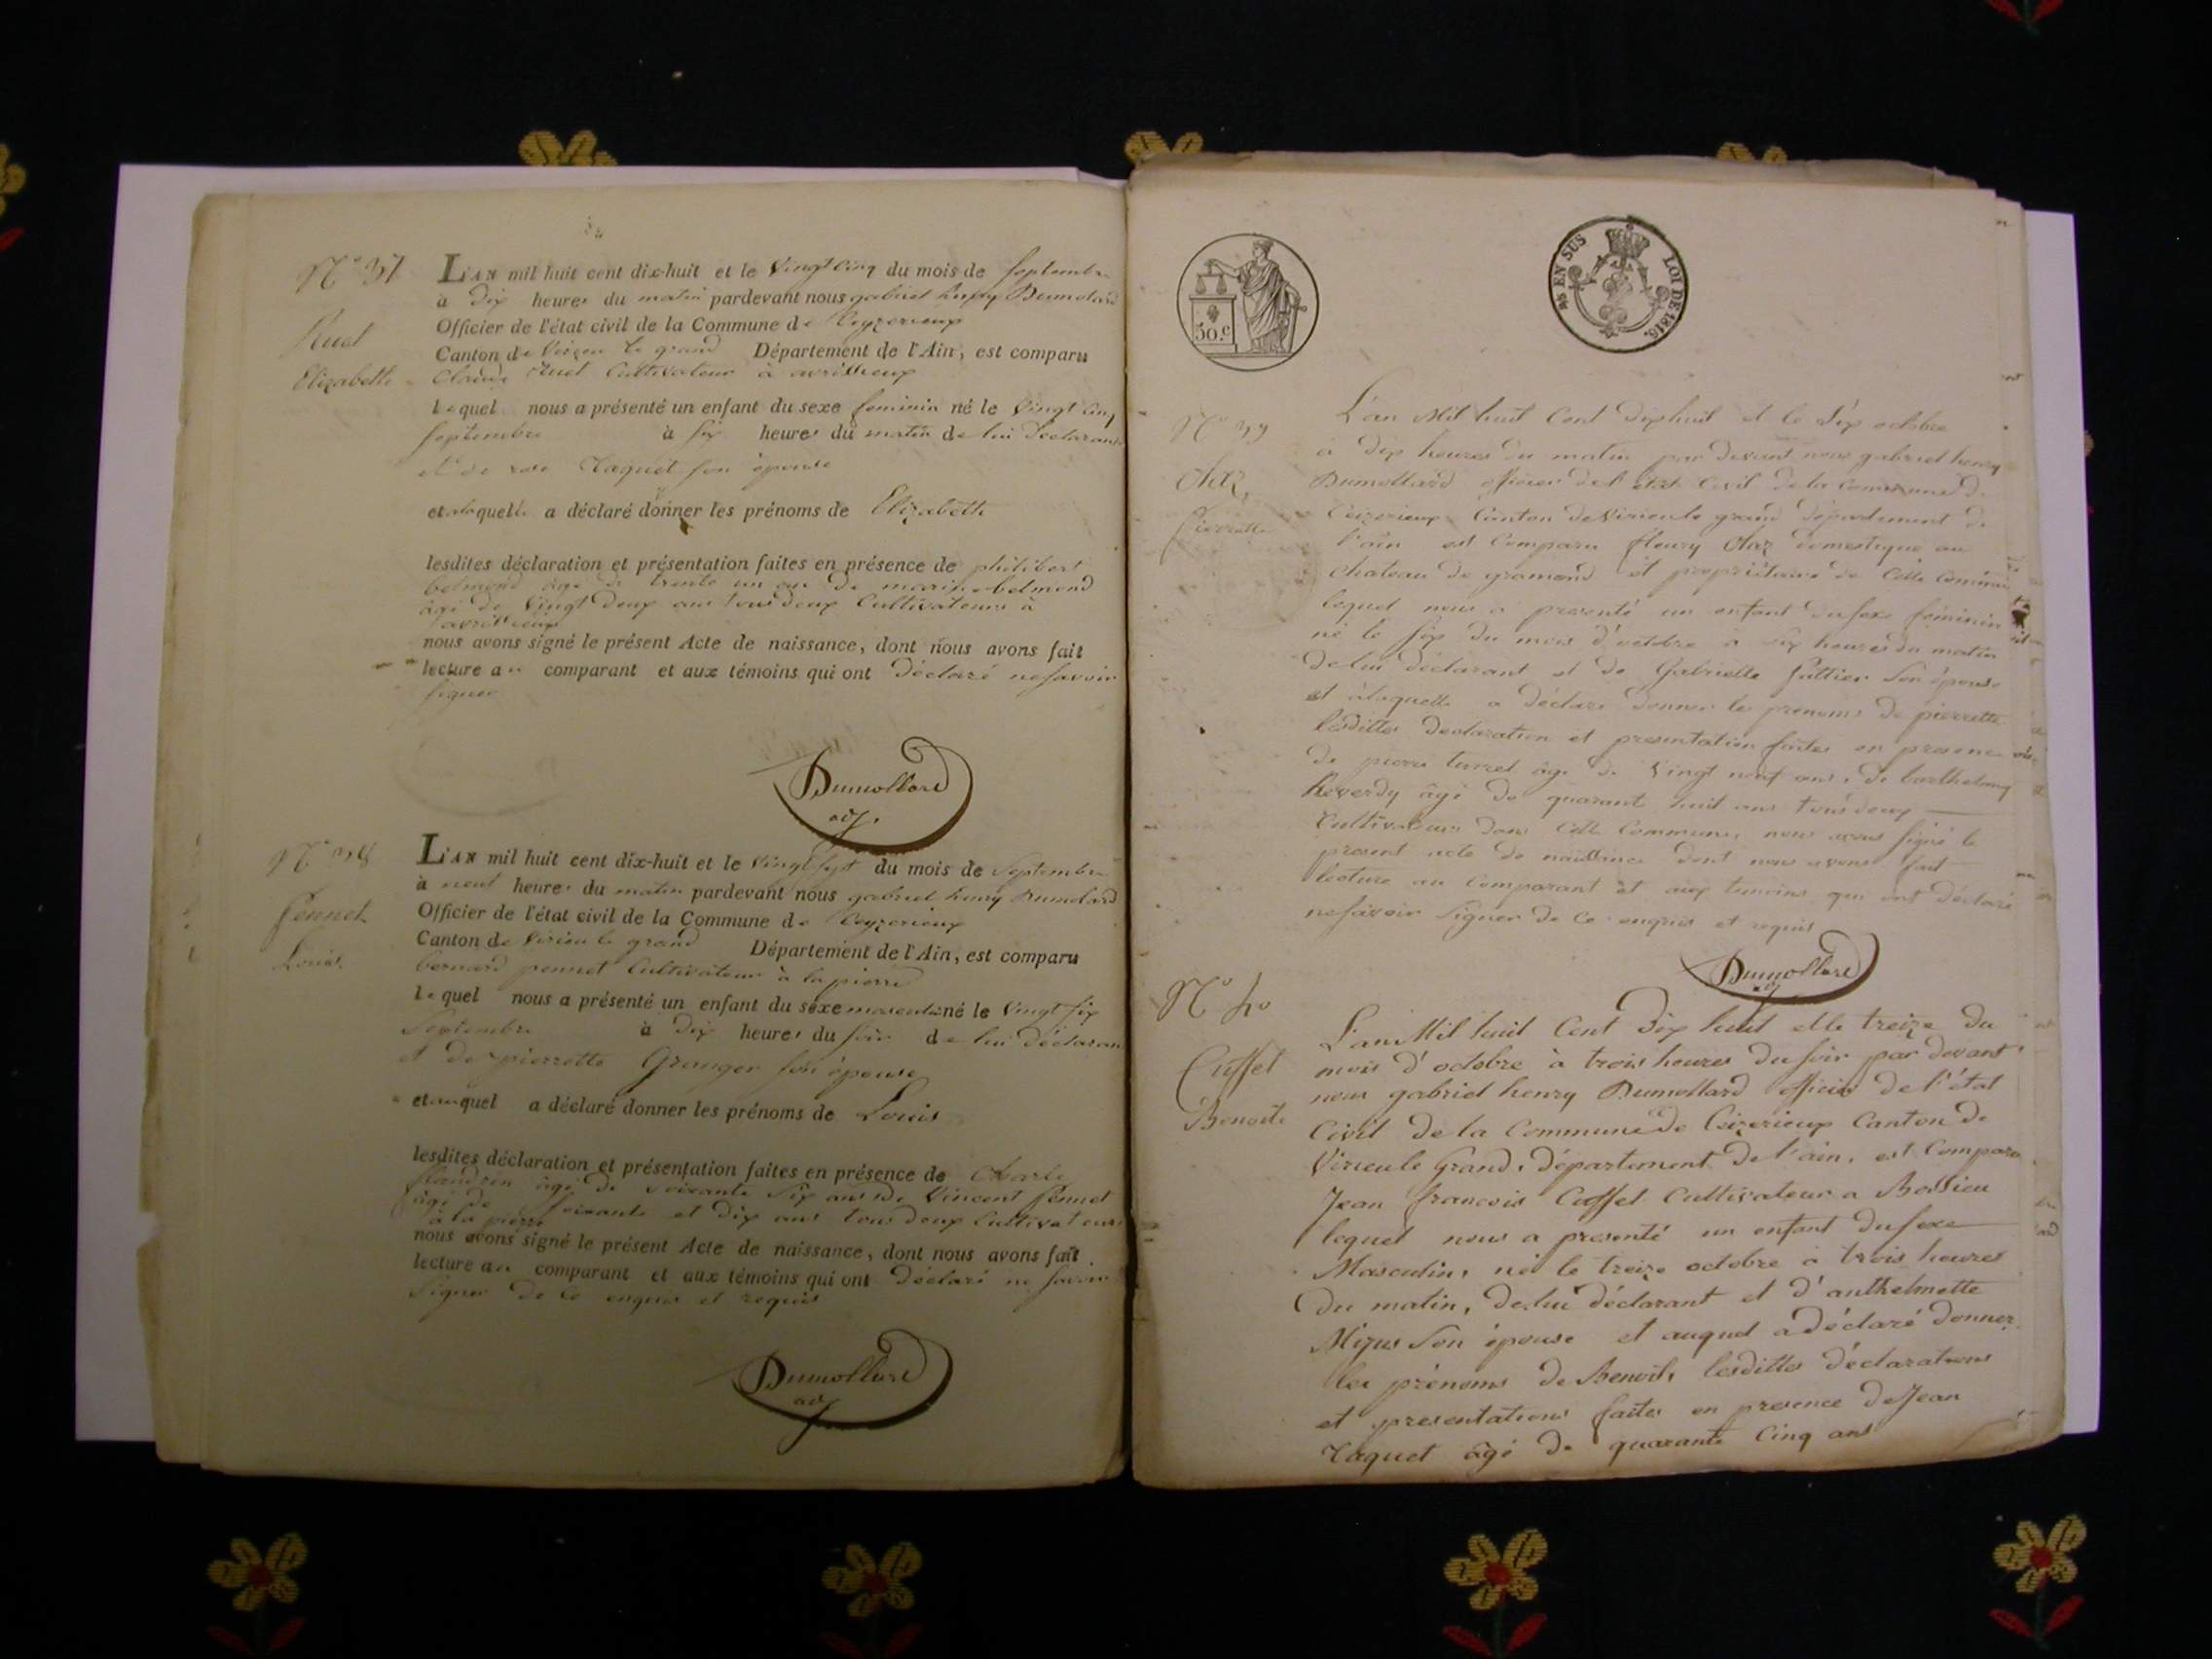 N° 37
Ruet
Elizabeth
L'AN mil huit cent dix-huit et le vingt cinq du mois de septembre
à dix heures du matin pardevant nous gabriel henry Dumolard
Officier de l'état civil de la Commune de Ceyzerieux
Canton de Virieu le grand Département de l'Ain, est comparu
Claude Ruet Cultivateur à avrissieux
lequel nous a présenté un enfant du sexe feminin né le vingt cinq
septembre à six heures du matin de lui déclarant
et de rose Taquet son épouse
et à laquelle a déclaré donner les prénoms de Elizabeth
lesdites déclaration et présentation faites en présence de philibert
belmond âgé de trente un ans de belmond
âgé de vingt deux ans tous deux Cultivateurs à
avrissieux
nous avons signé le présent Acte de naissance, dont nous avons fait
lecture au comparant et aux témoins qui ont déclaré ne savoir
signer
Dumollard
adj.
N° 38
Pennet
Louis.
L'AN mil huit cent dix-huit et le vingt sept du mois de Septembre
à neuf heures du matin pardevant nous gabriel henry Dumolard
Officier de l'état civil de la Commune de Ceyzerieux
Canton de Virieu le grand Département de l'Ain, est comparu
bernard pennet Cultivateur à la pierre
lequel nous a présenté un enfant du sexe masculin né le vingt six
Septembre à dix heures du soir de lui déclarant
et de pierrette Granger son épouse
et auquel a déclaré donner les prénoms de Louis
lesdites déclaration et présentation faites en présence de Charle
flandrin âgé de soixante six ans de Vincent Pennet
âgé de soixante et dix ans tous deux Cultivateurs
à la pierre
nous avons signé le présent Acte de naissance, dont nous avons fait
lecture au comparant et aux témoins qui ont déclaré ne savoir
signer de ce enquis et requis
Dumollard
adj
50 c
EN SUS
LOI DE 1816.
N° 39
Pierrette
L'an Mil huit Cent Dix huit et le Six octobre
à dix heures du matin par devant nous gabriel henry
Dumollard officier de l'état Civil de la Commune de
Ceizerieux Canton de Virieu le grand département de
l'ain est Comparu fleury domestique au
chateau de gramond et propriétaire de Cette Commune
lequel nous a presenté un enfant du sexe féminin
né le six du mois d'octobre à six heures du matin
de lui déclarant et de Gabrielle Son épouse
et à laquelle a déclaré donner les prenoms de pierrette
lesdittes declaration et presentation faites en presence
de pierre âgé de Vingt neuf ans, de barthelemy
Reverdy âgé de quarante huit ans tous deux
Cultivateurs dans Cette Commune, nous avons signé le
présent acte de naissance dont nous avons fait
lecture au Comparant et aux temoins qui ont déclaré
ne savoir signer de ce enquis et requis
Dumollard
adj
N° 40
Cuffet
Benoit
L'an Mil huit Cent Dix huit et le treize du
mois d'octobre à trois heures du soir par devant
nous gabriel henry Dumollard officier de l'état
Civil de la Commune de Ceizerieux Canton de
Virieu le Grand, département de l'ain, est Comparu
Jean francois Cuffet Cultivateur a Bossieu
lequel nous a presenté un enfant du sexe
Masculin, né le treize octobre à trois heures
du matin, de lui déclarant et d'anthelmette
son épouse et auquel a déclaré donner
les prénoms de Benoit, lesdittes déclarations
et presentations faites en presence de Jean
Taquet âgé de quarante Cinq ans